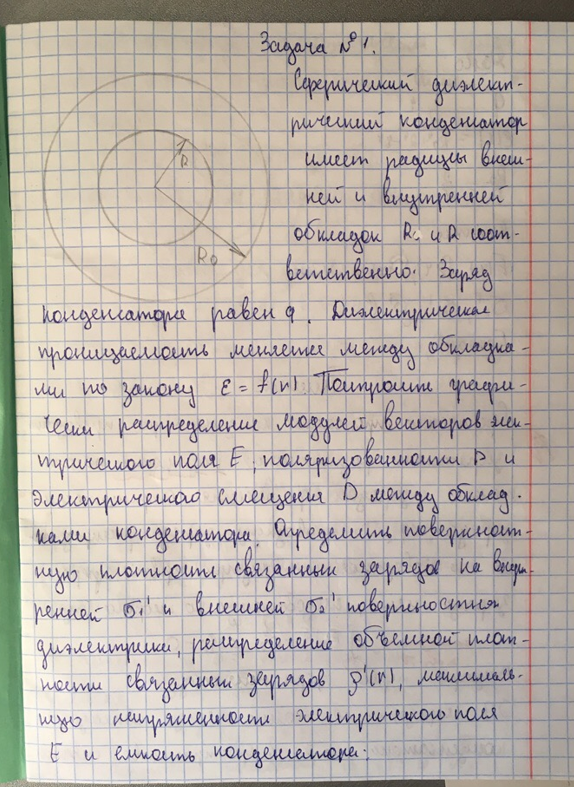 Задача № 1.
Сферический диэлект-
рический конденсатор
имеет радиусы внеш-
ней и внутренней
обкладок R₀ и R соот-
ветственно. Заряд
R
R₀
конденсатора равен q. Диэлектрическая
проницаемость меняется между обкладка-
ми по закону ε = f(r). Построить графи-
чески распределение модулей векторов элек-
трического поля E, поляризованности P и
электрического смещения D между обклад-
ками конденсатора. Определить поверхност-
ную плотность связанных зарядов на внут-
ренней σ₁' и внешней σ₂' поверхностях
диэлектрика, распределение объемной плот-
ности связанных зарядов ρ'(r), максималь-
ную напряженность электрического поля
E и емкость конденсатора.